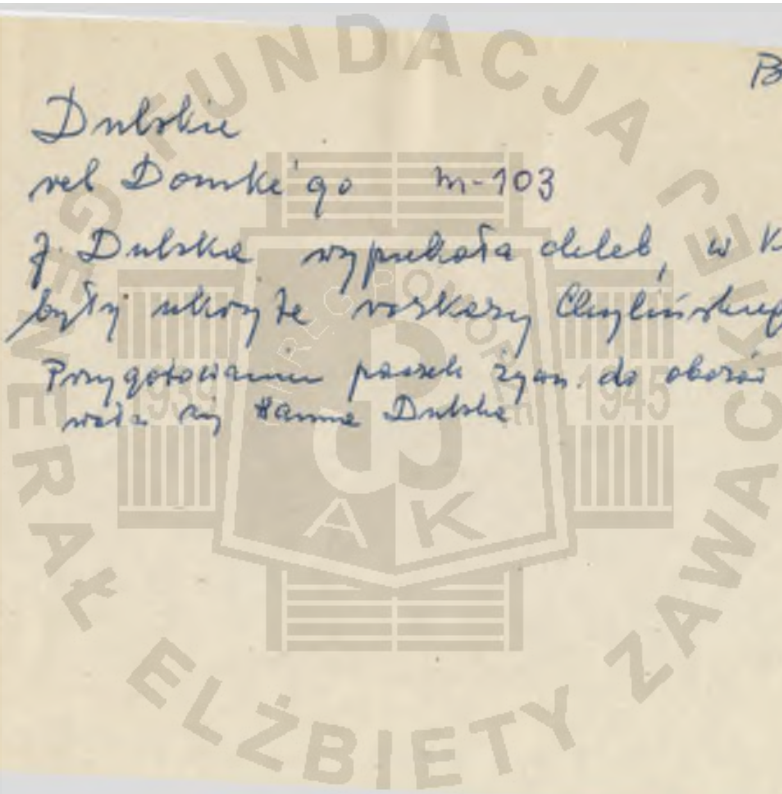 B
Dulskie
rel Domskiego m-103
J. Dulska wypiekała chleb, w k
były ukryte rozkazy Chylińskieg
Przygotowaniem paczek żywn. do obozów
wała się Hanna Dulska
FUNDACJA GENERAŁ ELŻBIETY ZAWACKIEJ
1939 1945
AK